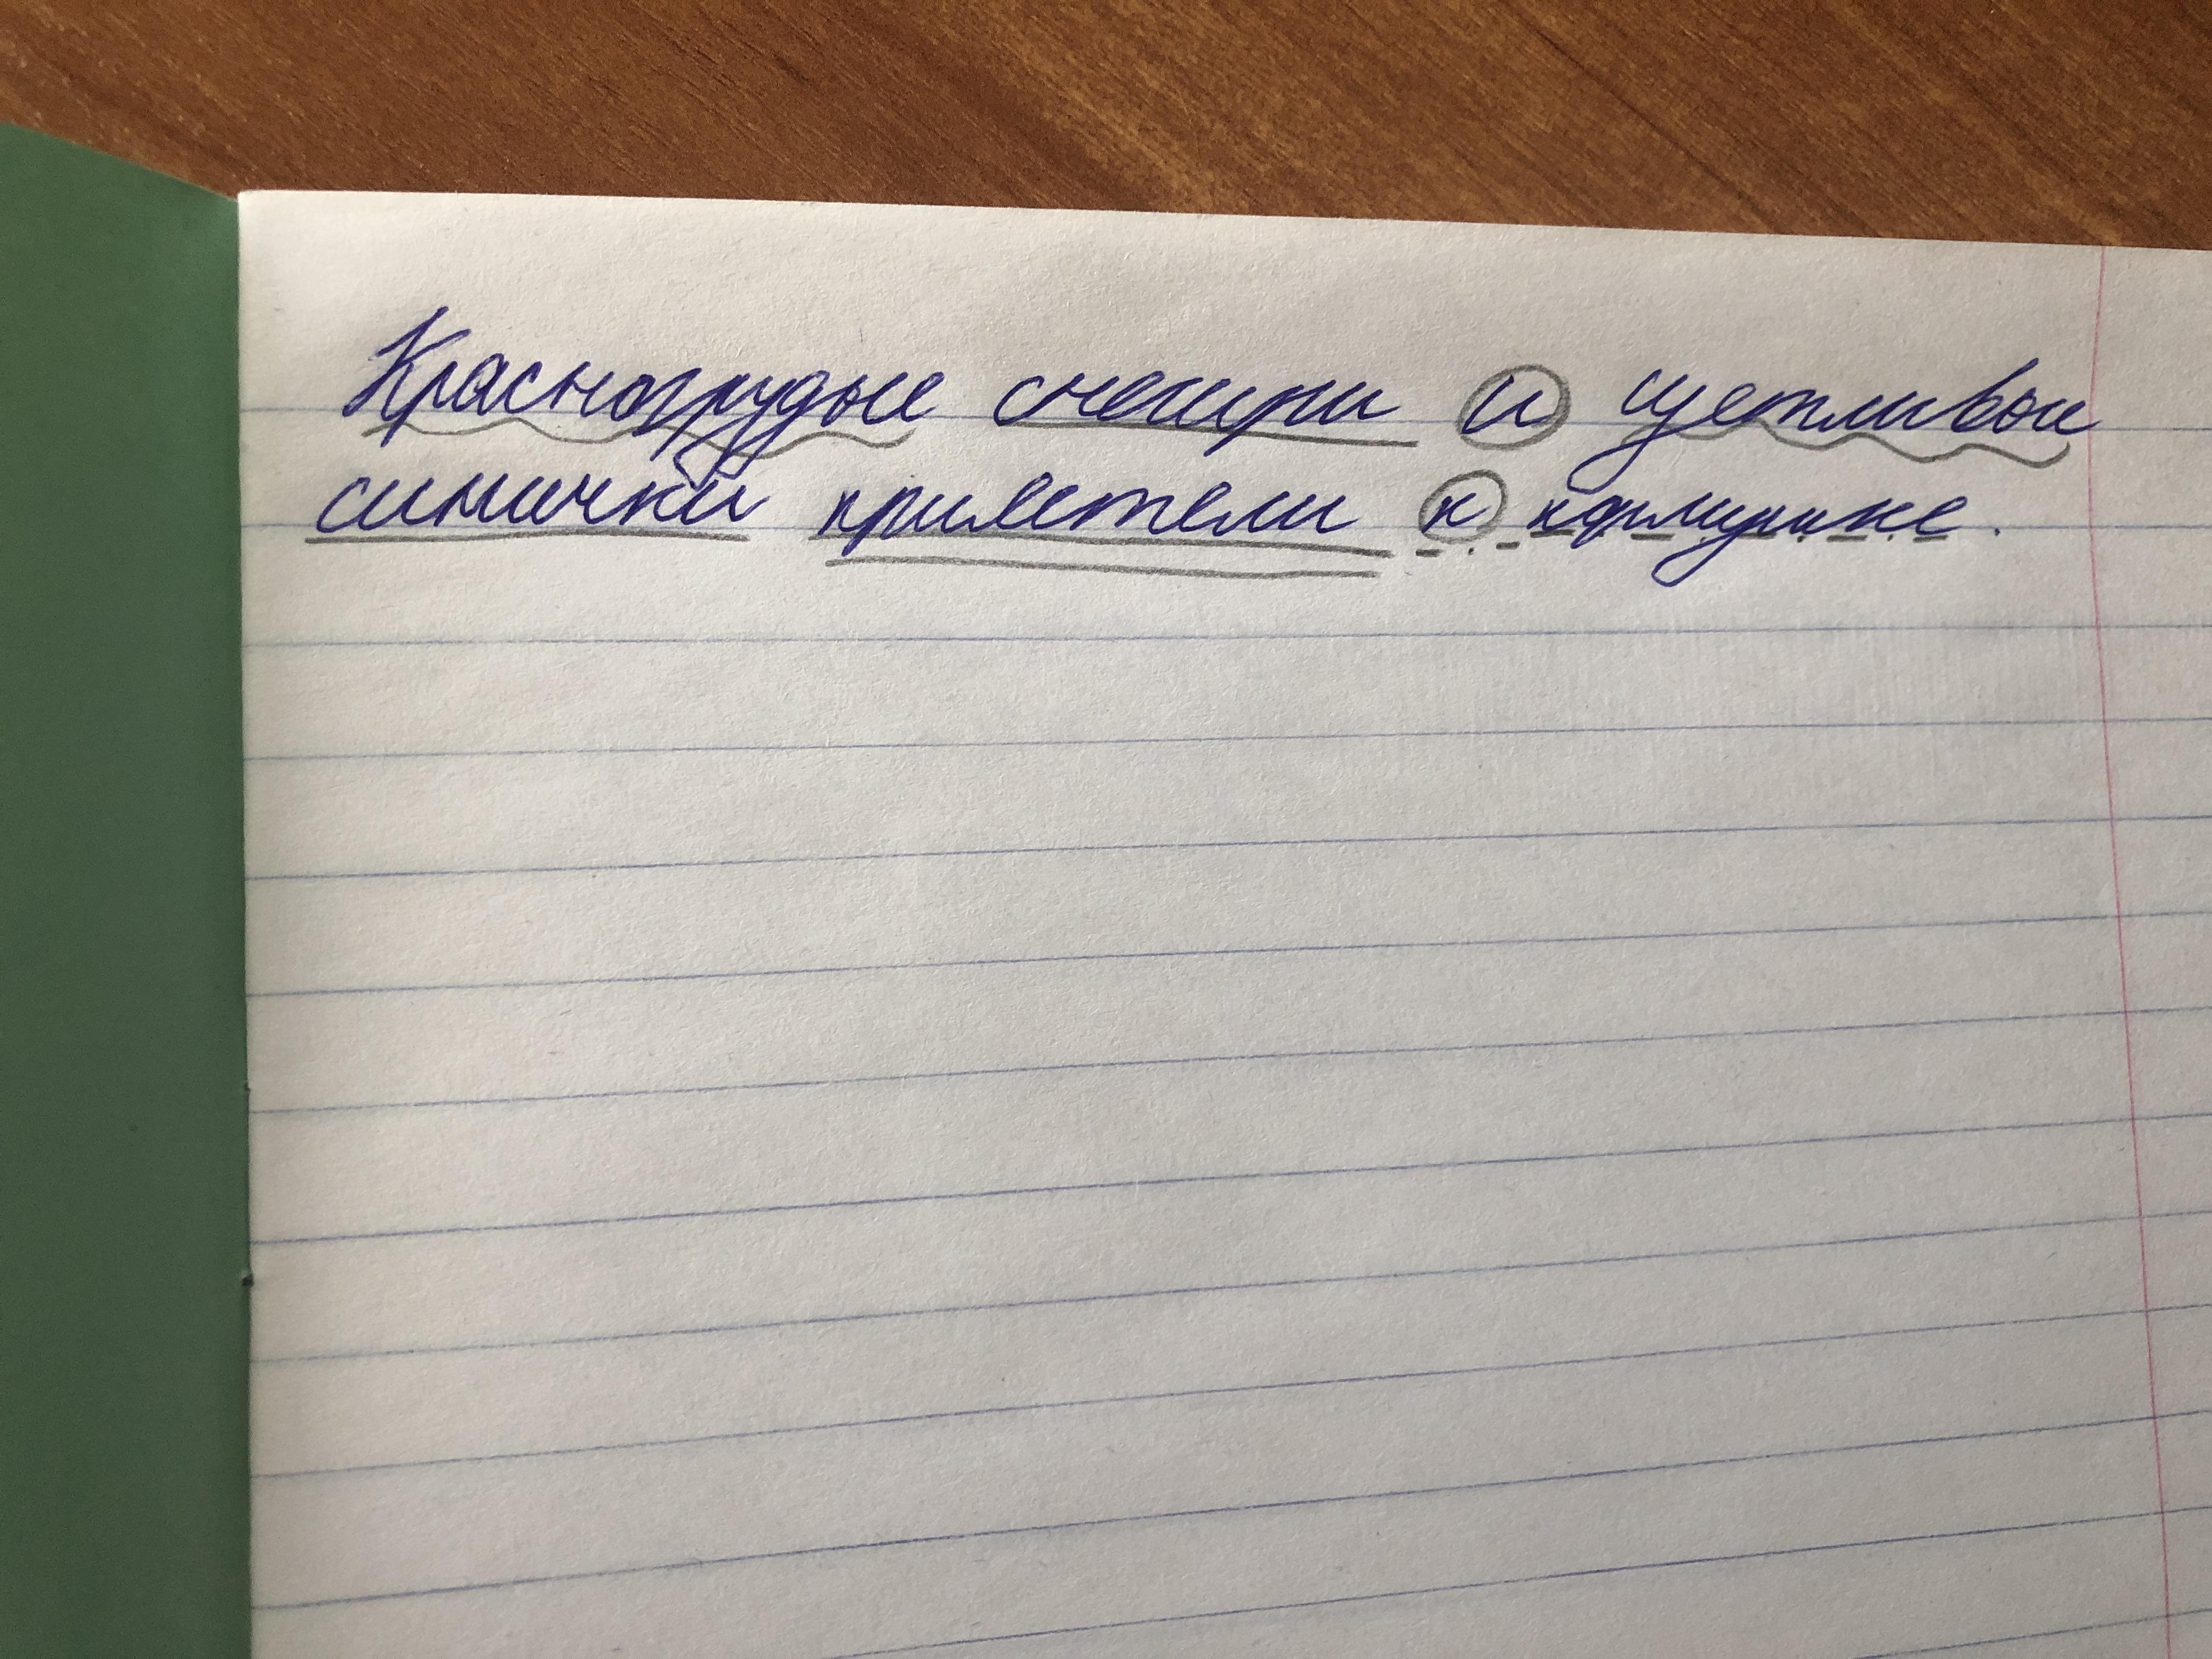 Красногрудые снегири и суетливые
синички прилетели к кормушке.